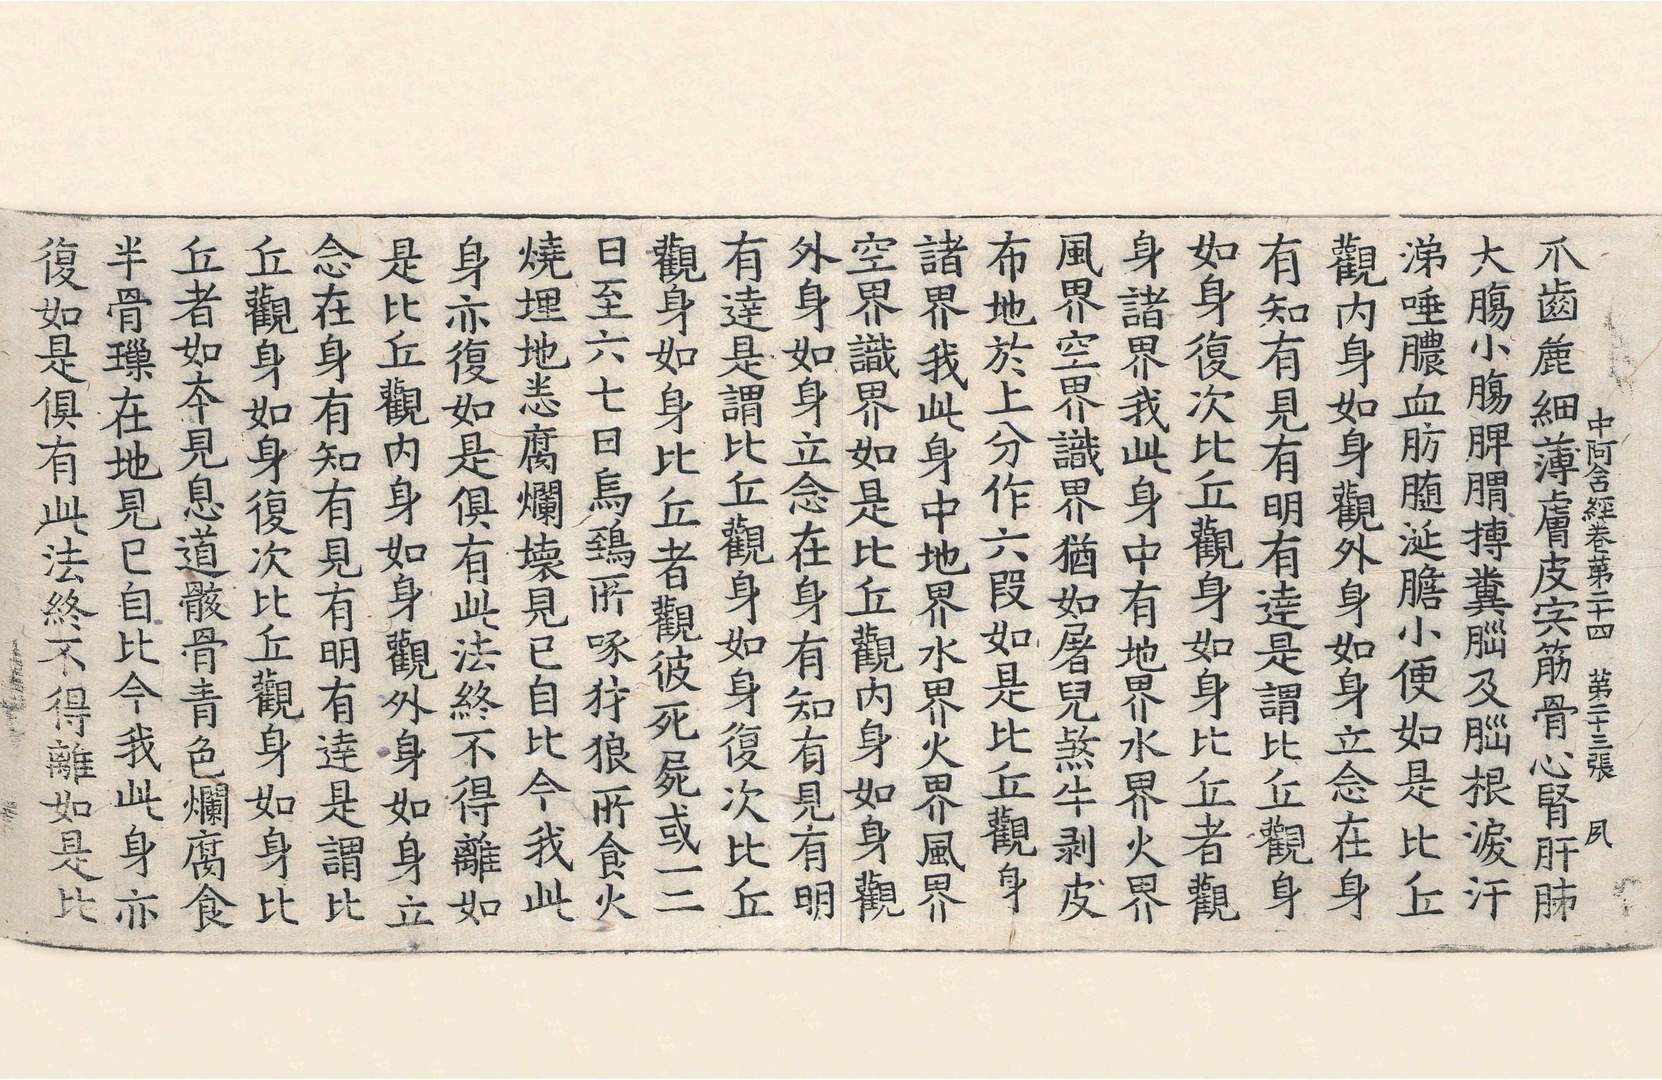 中阿含經卷第二十四 第二十三張 夙
爪齒麁細薄膚皮宍筋骨心腎肝肺
大膓小膓脾胃摶糞腦及腦根淚汗
涕唾膿血肪髓涎膽小便如是比丘
觀内身如身觀外身如身立念在身
有知有見有明有達是謂比丘觀身
如身復次比丘觀身如身比丘者觀
身諸界我此身中有地界水界火界
風界空界識界猶如屠兒煞牛剥皮
布地於上分作六段如是比丘觀身
諸界我此身中地界水界火界風界
空界識界如是比丘觀内身如身觀
外身如身立念在身有知有見有明
有達是謂比丘觀身如身復次比丘
觀身如身比丘者觀彼死屍或一二
日至六七日烏鵄所啄犲狼所食火
燒埋地悉腐爛壊見已自比今我此
身亦復如是俱有此法終不得離如
是比丘觀内身如身觀外身如身立
念在身有知有見有明有達是謂比
丘觀身如身復次比丘觀身如身比
丘者如夲見息道骸骨青色爛腐食
半骨璅在地見已自比今我此身亦
復如是俱有此法終不得離如是比